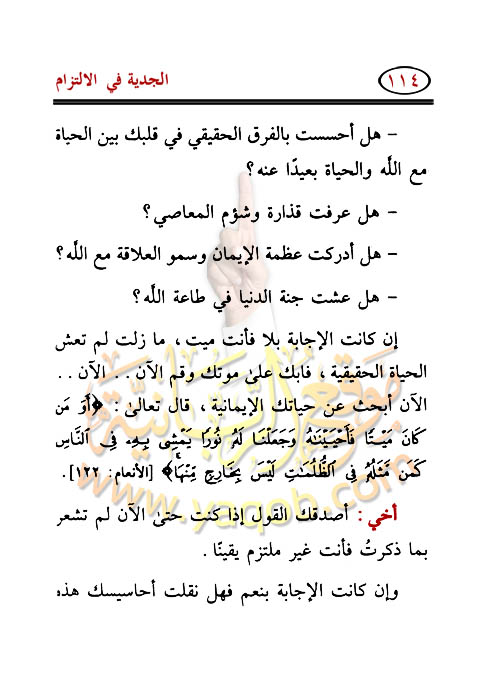 ١١٤ الجدية في الالتزام
- هل أحسست بالفرق الحقيقي في قلبك بين الحياة
مع اللَّه والحياة بعيدًا عنه؟
- هل عرفت قذارة وشؤم المعاصي؟
- هل أدركت عظمة الإيمان وسمو العلاقة مع اللَّه؟
- هل عشت جنة الدنيا في طاعة اللَّه؟
إن كانت الإجابة بلا فأنت ميت، ما زلت لم تعش
الحياة الحقيقية، فابك علىٰ موتك وقم الآن . . الآن . .
الآن أبحث عن حياتك الإيمانية، قال تعالىٰ: ﴿أَوَ مَن
كَانَ مَيْتًا فَأَحْيَيْنَـٰهُ وَجَعَلْنَا لَهُۥ نُورًا يَمْشِى بِهِۦ فِى ٱلنَّاسِ
كَمَن مَّثَلُهُۥ فِى ٱلظُّلُمَـٰتِ لَيْسَ بِخَارِجٍ مِّنْهَا﴾ [الأنعام: ١٢٢].
أخي: أصدقك القول إذا كنت حتىٰ الآن لم تشعر
بما ذكرتُ فأنت غير ملتزم يقينًا.
وإن كانت الإجابة بنعم فهل نقلت أحاسيسك هذه
موقع الربانية
www.yaqob.com